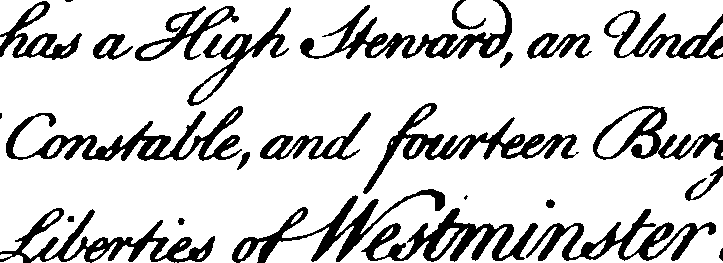 has a High Steward, an Unde
Constable, and fourteen Burg
Liberties of Westminster